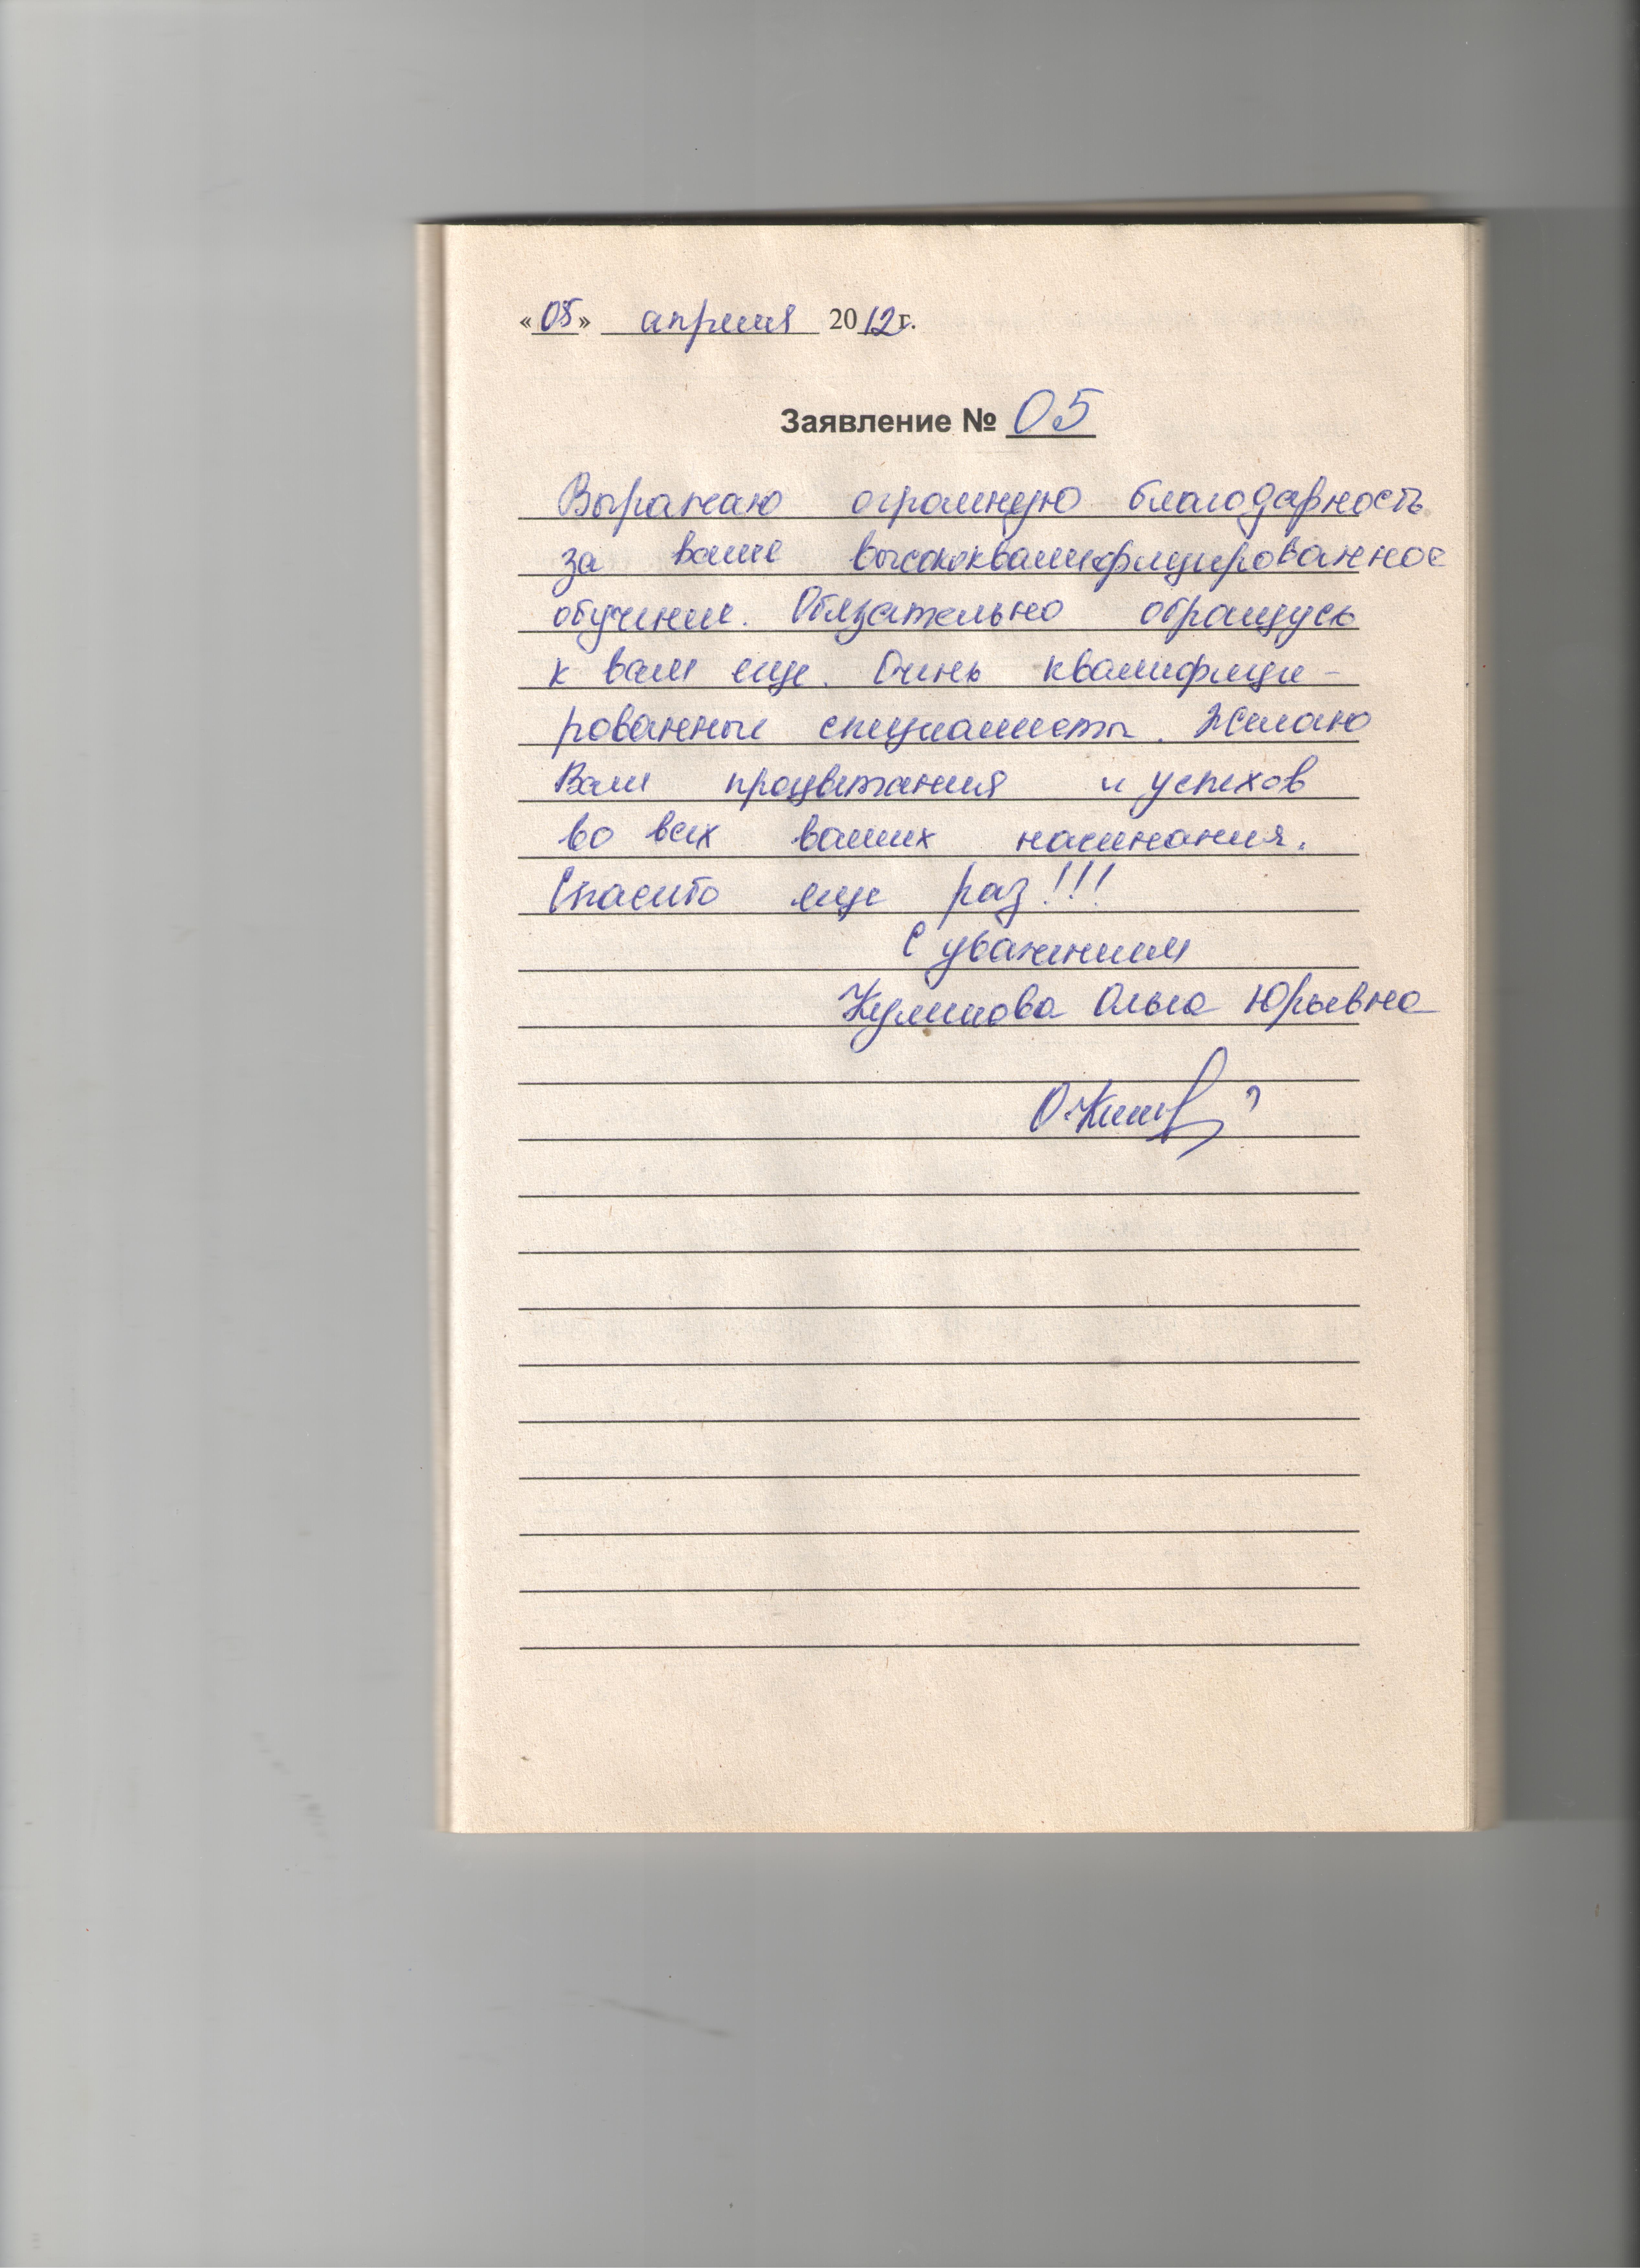 «05» апреля 2012 г.
Заявление № 05
Выражаю огромную благодарность
за ваше высококвалифицированное
обучение. Обязательно обращусь
к вам еще. Очень квалифици-
рованные специалисты. Желаю
Вам процветания и успехов
во всех ваших начинания.
Спасибо еще раз!!!
С уважением
Куликова Ольга Юрьевна